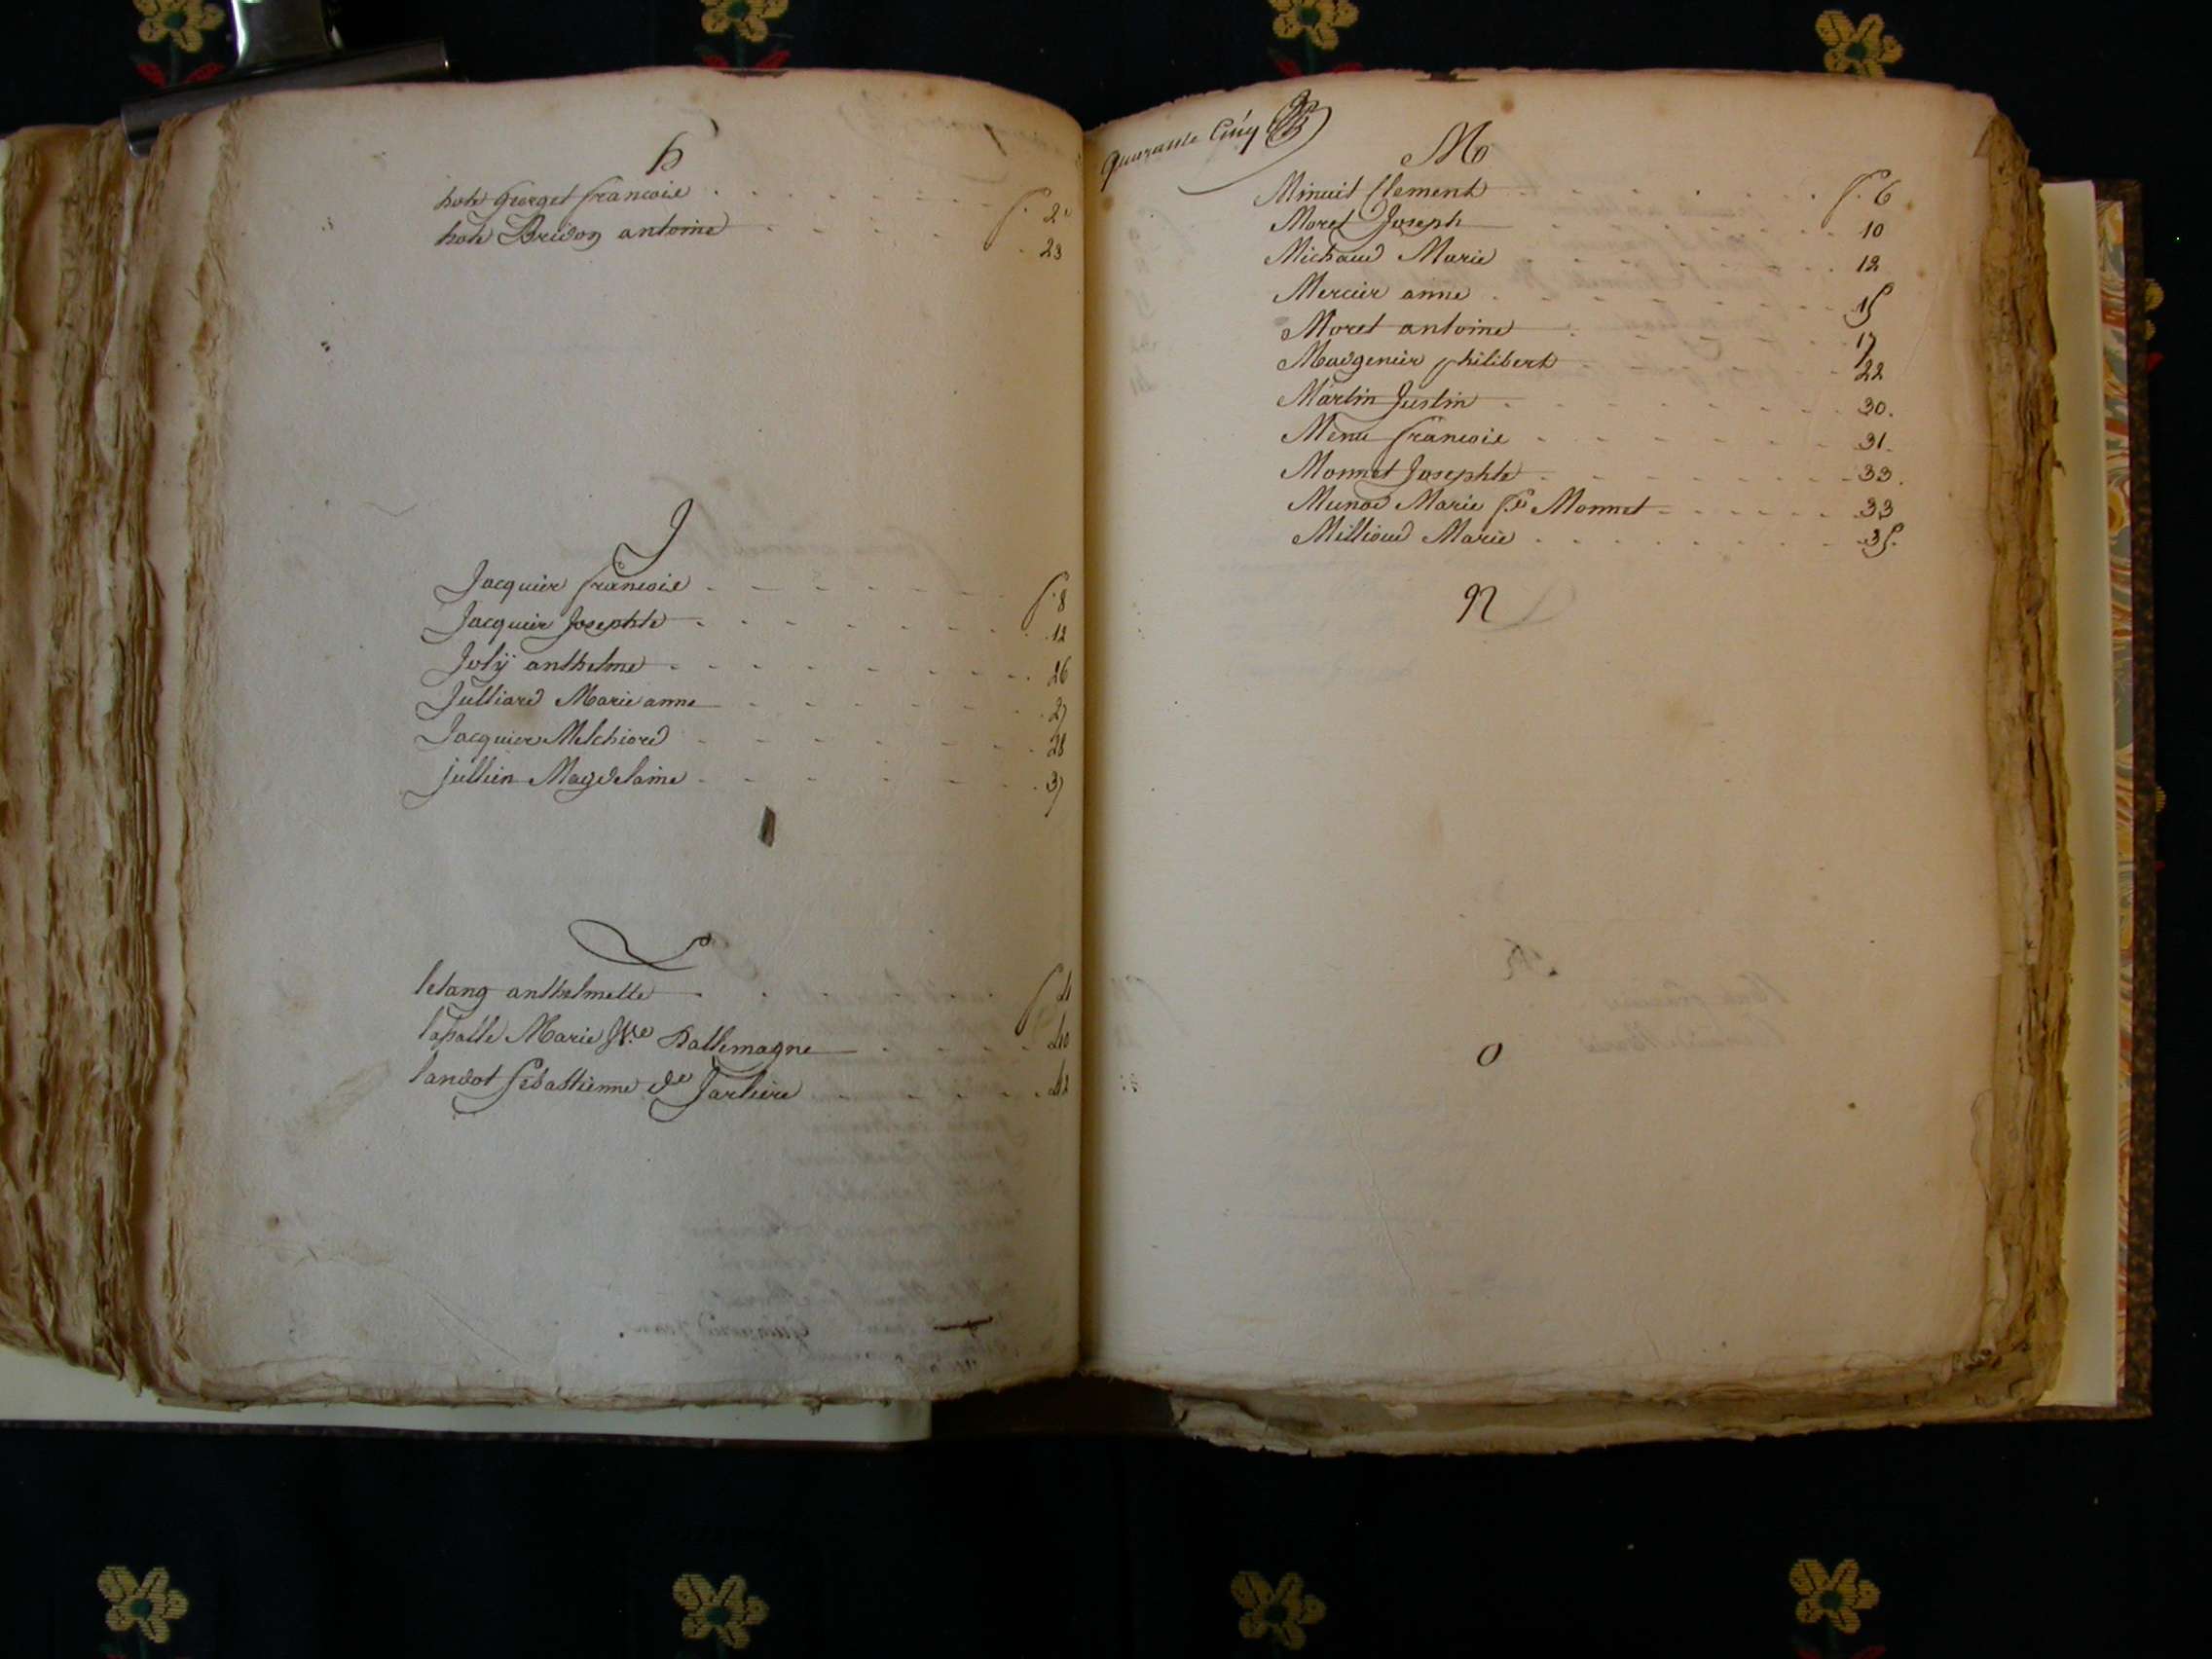 h
hote georget francoise f. 2
hote Bridon antoine 23
J
Jacquier francoise f. 8
Jacquier Josephte 12
Jolÿ anthelme 26
Julliard Marie anne 27
Jacquier Melchiord 28
jullien Magdelaine 37
L
letang anthelmette f.
lapalle Marie Dallemagne 40
landot sebastienne de Jarliere 42
quarante Cinq
M
Minuit Clement f. 6
Moret Joseph 10
Michaud Marie 12
Mercier anne 15
Moret antoine 17
Maugenier philibert 22
Martin Justin 30.
Menu francoise 31.
Monnet Josephte 33.
Munod Marie fe Monnet 33
Millioud Marie 35.
N
O